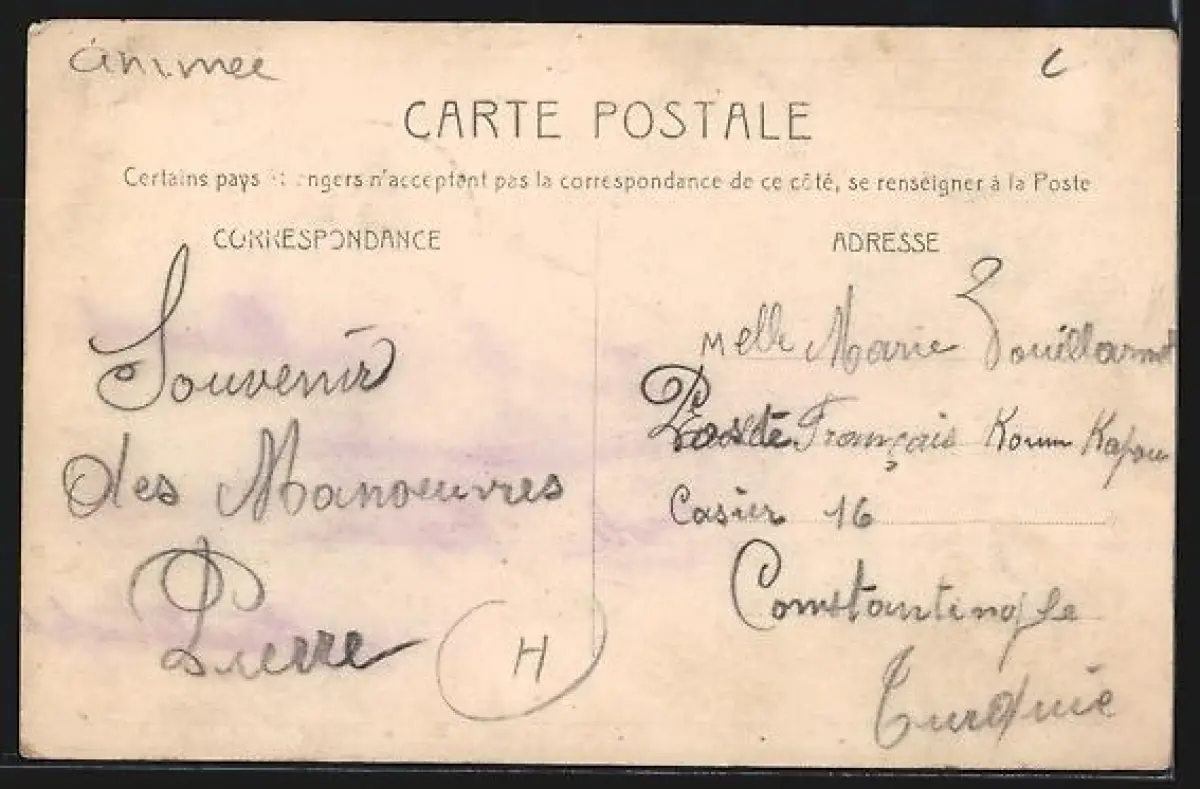 animée
c
CARTE POSTALE
Certains pays étrangers n'acceptent pas la correspondance de ce côté, se renseigner à la Poste
CORRESPONDANCE
Souvenir
des Manoeuvres
Pierre
H
ADRESSE
Melle Marie
Poste Français Koum Kapou
Casier 16
Constantinople
Turquie